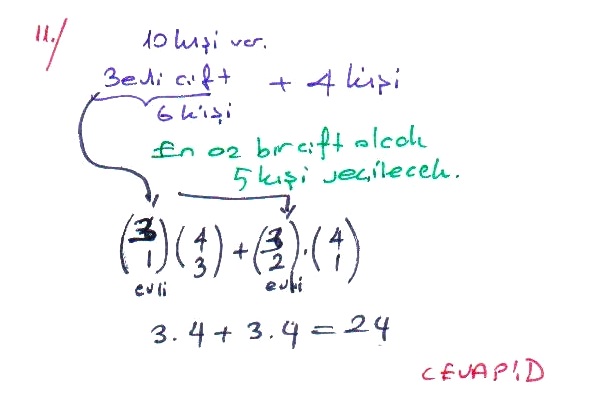 11./
10 kişi var.
3 evli çift + 4 kişi
6 kişi
En az bir çift olcak
5 kişi seçilecek.
(3 1) (4 3) + (3 2) . (4 1)
evli evli
3.4 + 3.4 = 24
CEVAP: D